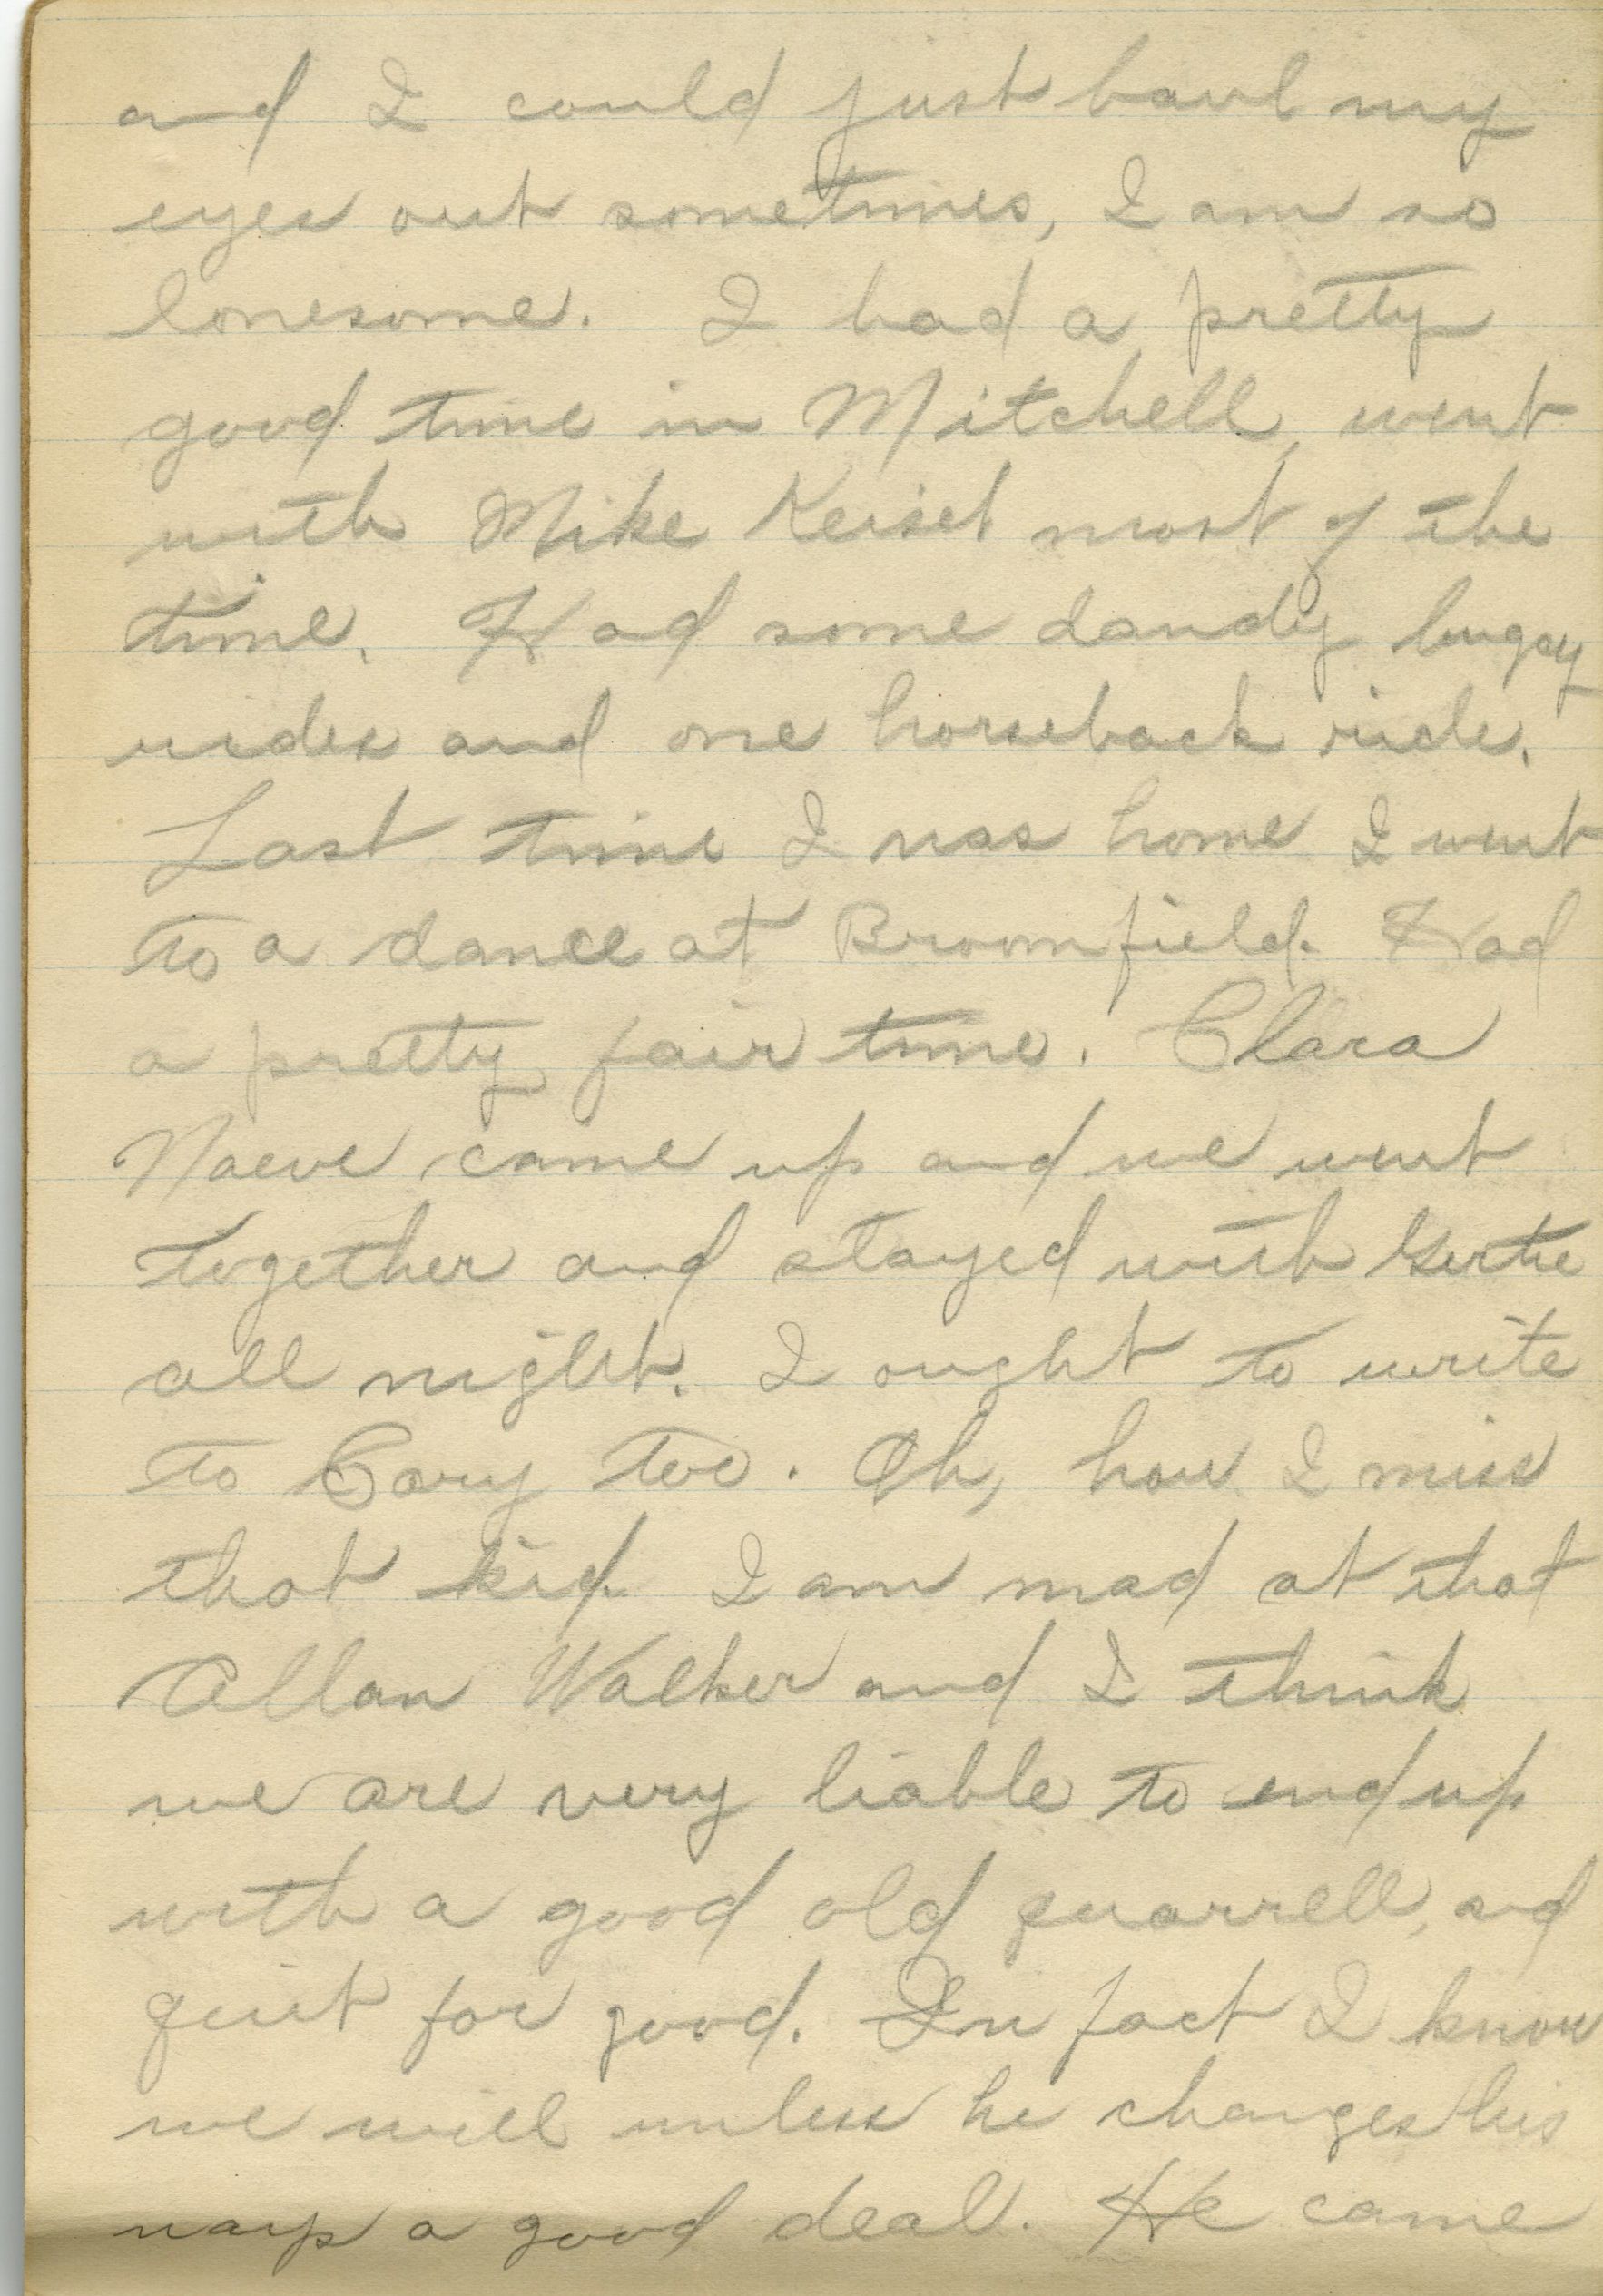 and I could just bawl my
eyes out sometimes, I am so
lonesome. I had a pretty
good time in Mitchell, went
with Mike Keisel most of the
time. Had some dandy bugay
rides and one horseback ride.
Last time I was home I went
to a dance at Broomfield. Had
a pretty fair time. Clara
Naeve came up and we went
together and stayed with Gertie
all night. I ought to write
to Cary too. Oh, how I miss
that kid. I am mad at that
Allan Walker and I think
we are very liable to end up
with a good old quarrell, and
quit for good. In fact I know
we will unless he changes his
ways a good deal. He came